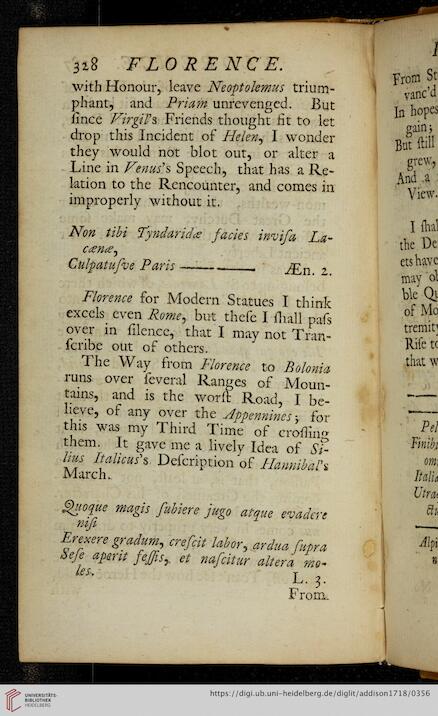 328 FLORENCE.
with Honour, leave Neoptolemus trium-
phant, and Priam unrevenged. But
ſince Virgil's Friends thought fit to let
drop this Incident of Helen, I wonder
they would not blot out, or alter a
Line in Venus's Speech, that has a Re-
lation to the Rencounter, and comes in
improperly without it.
Non tibi Tyndaridæ facies inviſa La-
cænæ,
Culpatuſve Paris ——— Æn. 2.
Florence for Modern Statues I think
excels even Rome, but theſe I ſhall paſs
over in ſilence, that I may not Tran-
ſcribe out of others.
The Way from Florence to Bolonia
runs over ſeveral Ranges of Moun-
tains, and is the worſt Road, I be-
lieve, of any over the Appennines; for
this was my Third Time of croſſing
them. It gave me a lively Idea of Si-
lius Italicus's Deſcription of Hannibal's
March.
Quoque magis ſubiere jugo atque evadere
niſi
Erexere gradum, creſcit labor, ardua ſupra
Seſe aperit feſſis, et naſcitur altera mo-
les. L. 3.
From
From St
vanc'd
In hopes
gain;
But ſtill
grew,
And a
View.
I ſhal
the De
ets have
may ob
ble Qu
of Mo
tremit
Riſe to
that w
Pel
Finib
om
Italia
Utra
Alpi
UNIVERSITÄTS-
BIBLIOTHEK
HEIDELBERG
https://digi.ub.uni-heidelberg.de/diglit/addison1718/0356